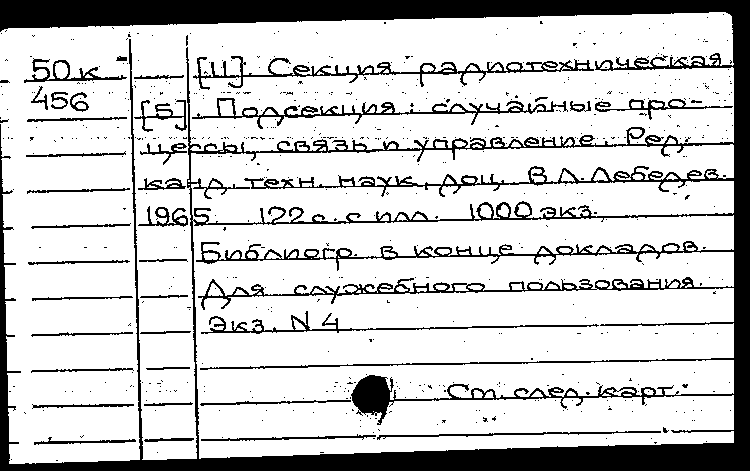 50к [11]. Секция радиотехническая.
456 [5]. Подсекция: случайные про-
цессы, связь и управление. Ред.
канд. техн. наук, доц. В.Л. Лебедев.
1965 122 с. с илл. 1000 экз.
Библиогр. в конце докладов.
Для служебного пользования.
Экз. N 4
См. след. карт.